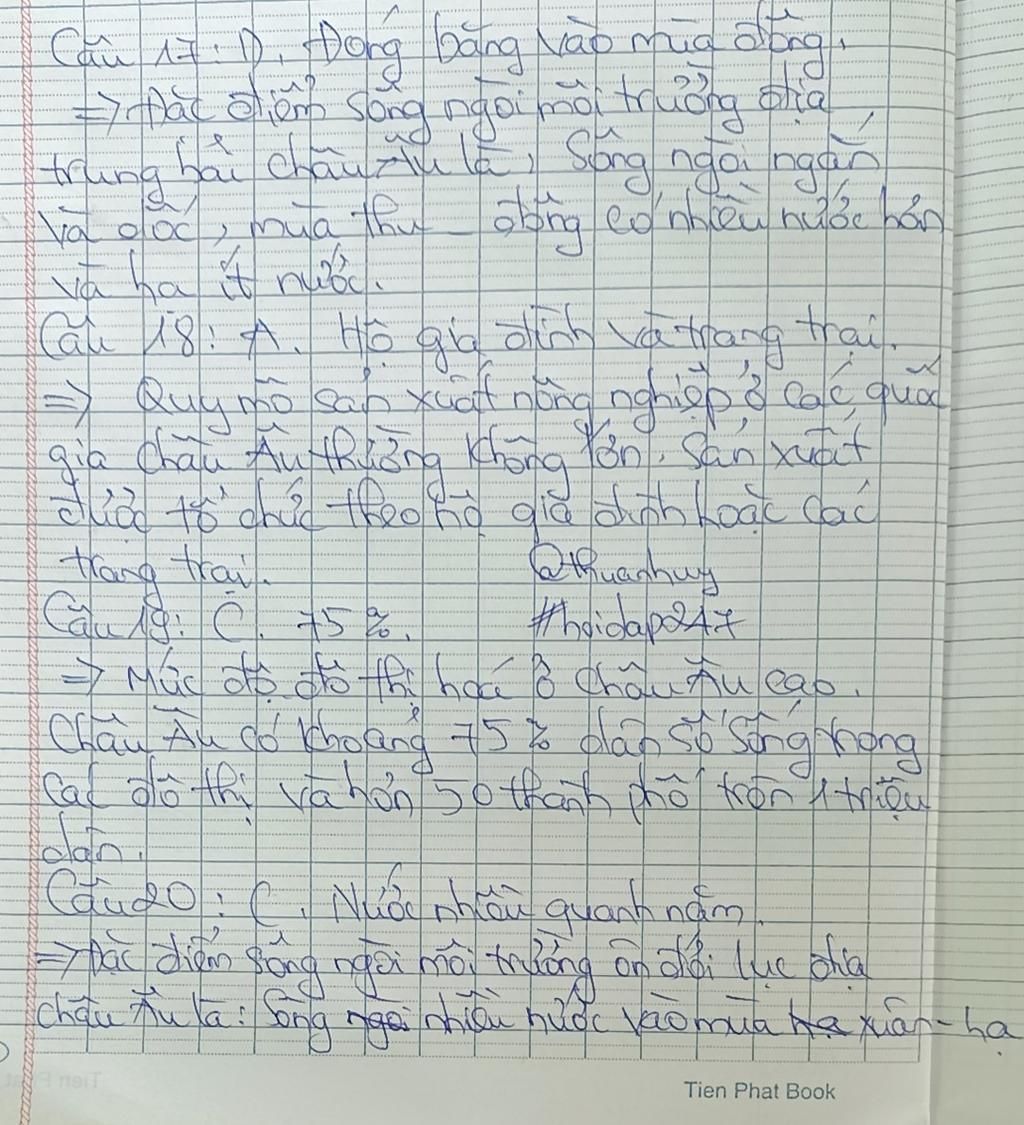 Câu 17: D. Đóng băng vào mùa đông.
=> Đặc điểm sông ngòi môi trường địa
trung hải châu Âu là, Sông ngòi ngắn
và dốc, mùa thu - đông có nhiều nước hơn
và hạ ít nước.
Câu 18: A. Hộ gia đình và trang trại.
=> Quy mô sản xuất nông nghiệp ở các quốc
gia châu Âu thường không lớn. Sản xuất
được tổ chức theo hộ gia đình hoặc các
trang trại.
@thuanhuy
Câu 19: C. 75%.
#hoidap247
=> Mức độ đô thị hoá ở châu Âu cao.
Châu Âu có khoảng 75% dân số sống trong
các đô thị và hơn 50 thành phố trên 1 triệu
dân.
Câu 20: C. Nước nhiều quanh năm.
=> Đặc điểm sông ngòi môi trường ôn đới lục địa
châu Âu là: Sông ngòi nhiều nước vào mùa hạ xuân - hạ
Tien Phat Book